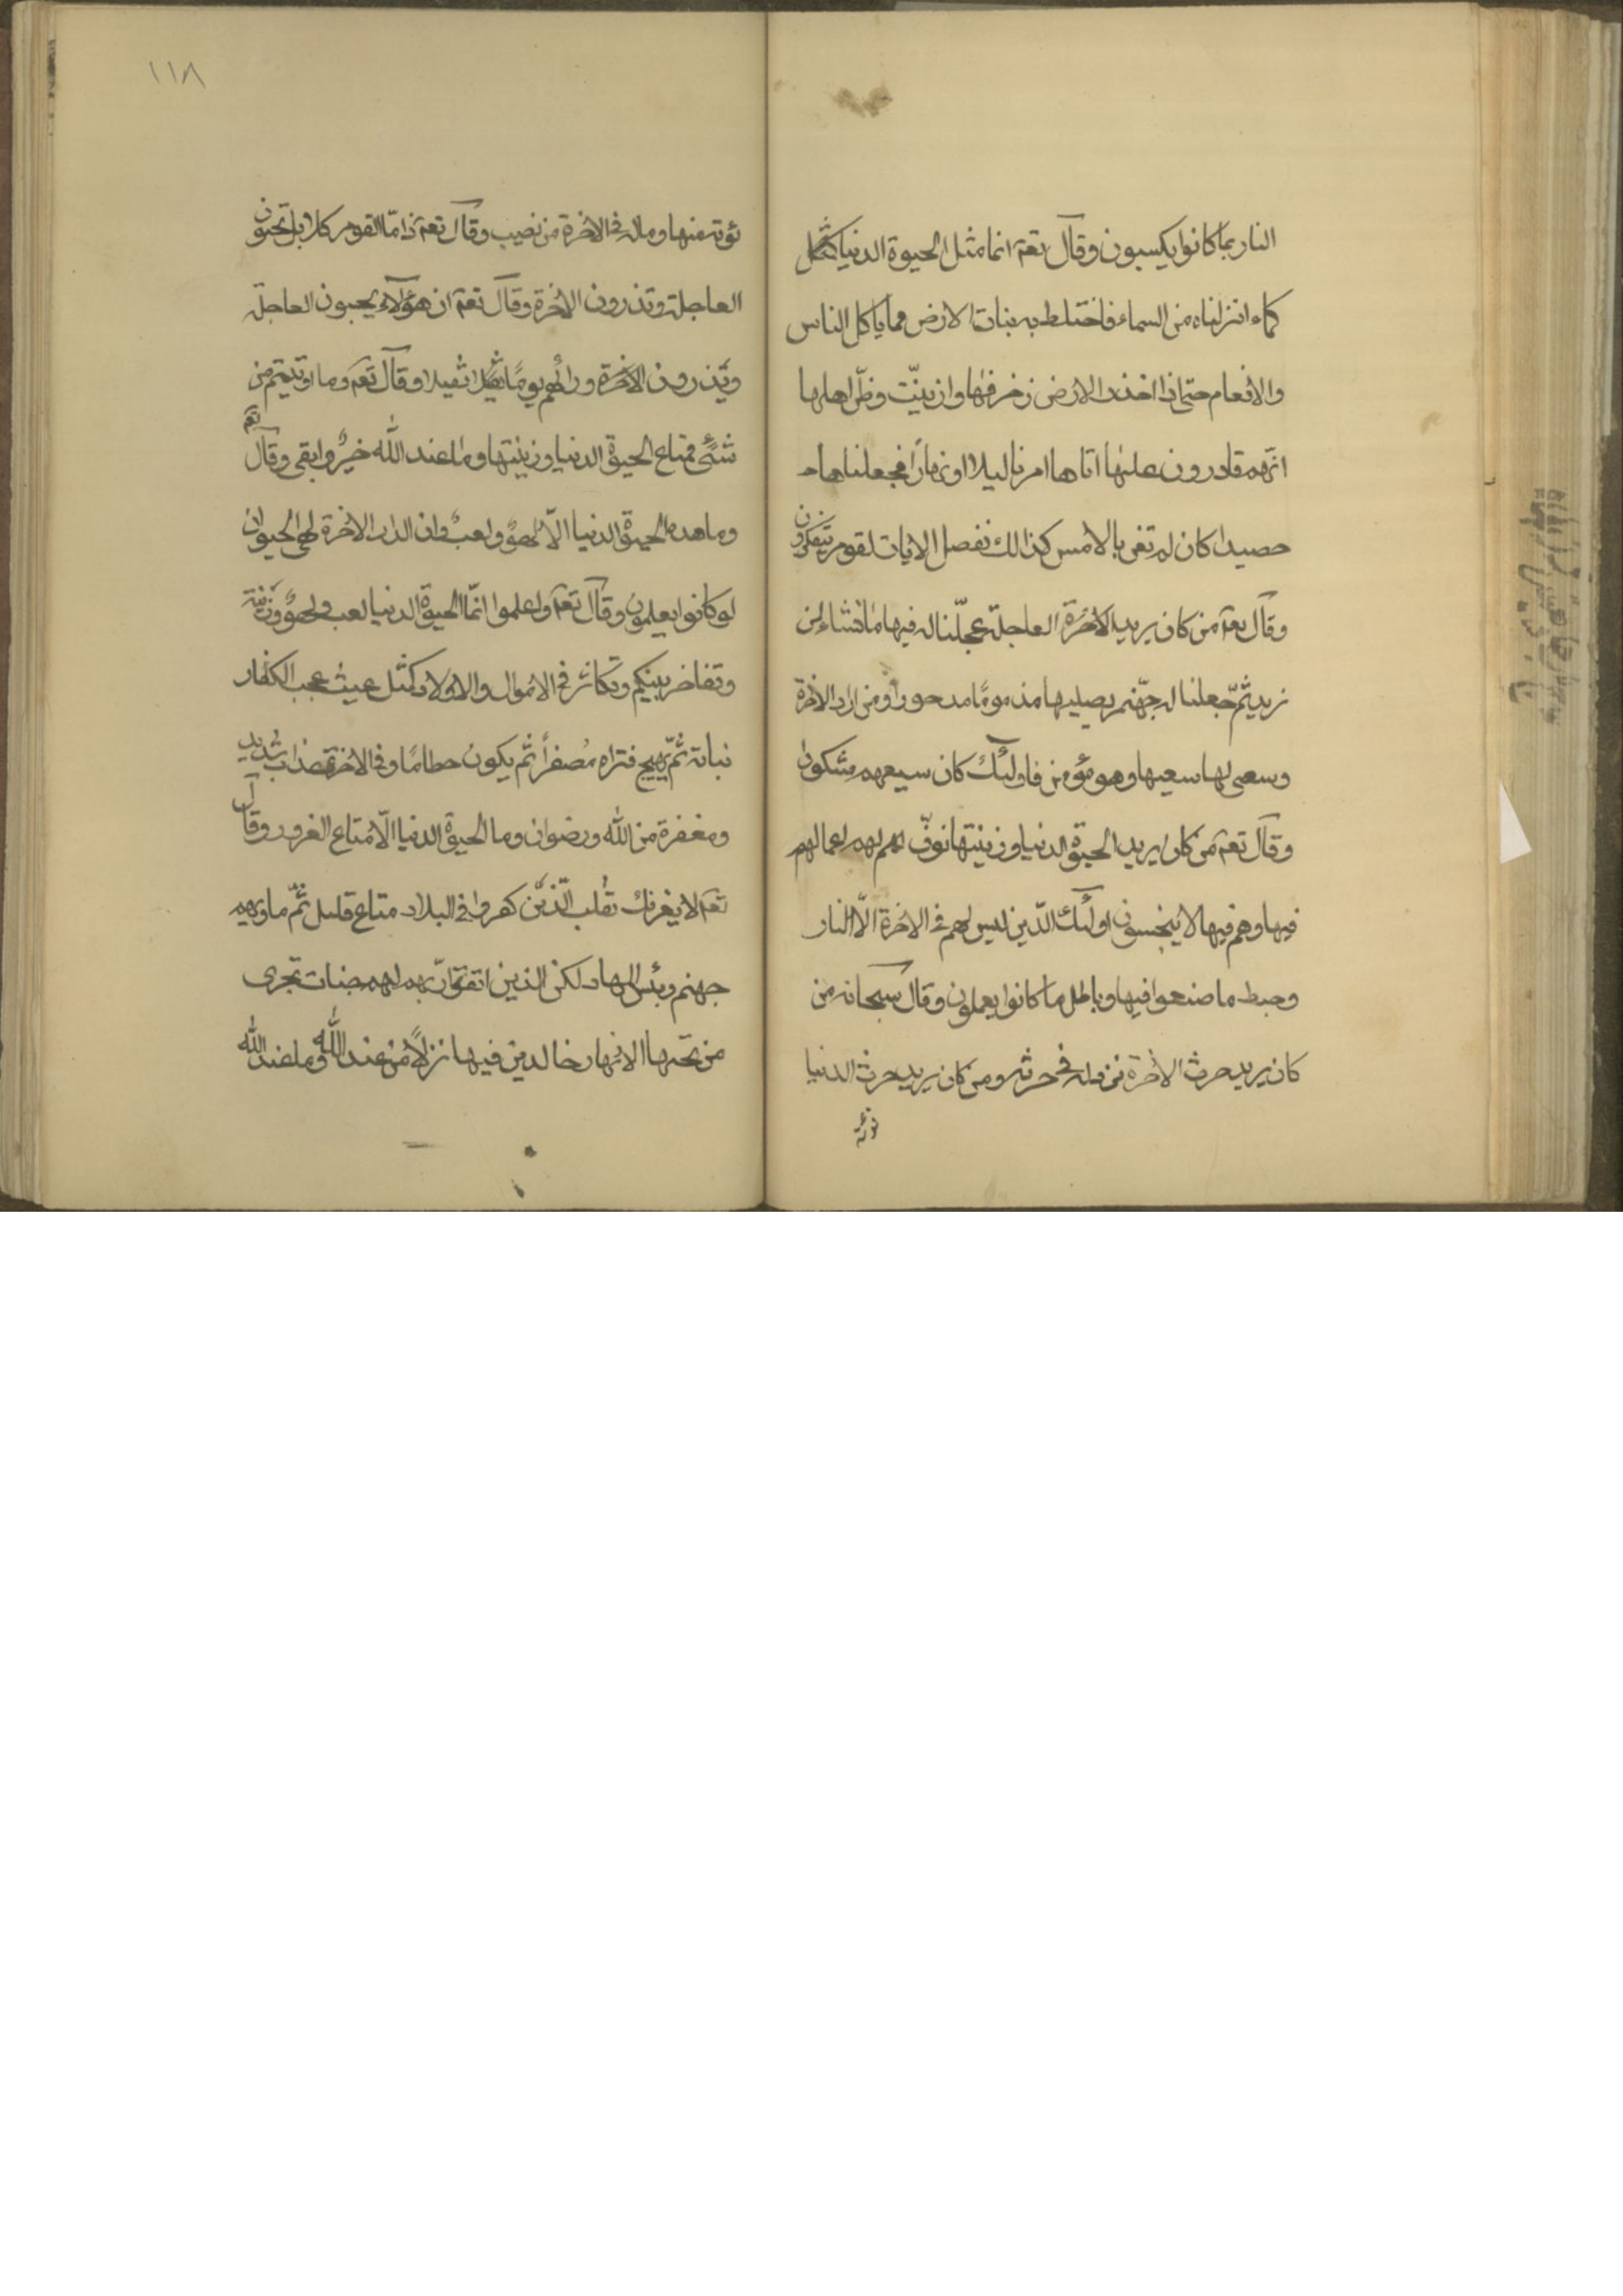 النار بما كانوا يكسبون وقال تعم انما مثل الحيوة الدنيا كمثل
كماء انزلناه من السماء فاختلط به نبات الارض مما ياكل الناس
والانعام حتى اذا اخذت الارض زخرفها وازينّت وظنّ اهلها
انّهم قادرون عليها اتاها امرنا ليلا او نهاراً فجعلناها
حصيدا كان لم تغن بالامس كذالك نفصل الايات لقوم يتفكرون
وقال تعم من كان يريد الاخرة العاجلة عجلّنا له فيها ما نشاء لمن
نريد ثمّ جعلنا له جهّنم يصليها مذموماً مدحورا ومن اراد الاخرة
وسعى لها سعيها وهو مؤمن فاولئك كان سيعهم مشكورا
وقال تعم من كان يريد الحيوة الدنيا وزينتها نوفّ لهم اعمالهم
فيها وهم فيها لا يبخسون اولئك الذّين ليس لهم فى الاخرة الاّ النار
وحبط ما صنعوا فيها وباطل ما كانوا يعملون وقال سبحانه من
كان يريد حرث الاخرة نزد له فى حرثه ومن كان يريد حرث الدنيا
نؤته
١١٨
نؤته منها وماله فى الاخرة من نصيب وقال تعم ذامّا لقوم كلا بل تحبون
العاجلة وتذرون الاخرة وقال تعم ان هؤلاء يحبون العاجلة
ويذرون الاخرة ورائهم يوماً ثقيلا وقال تعم وما اوتيتم من
شئ فمتاع الحيوة الدنيا وزينتها وما عند الله خيرٌ وابقى وقال تعم
وما هذه الحيوة الدنيا الاّ لهوٌ ولعبٌ وان الدار الاخرة لهى الحيوان
لو كانوا يعلمون وقال تعم واعلموا انمّا الحيوة الدنيا لعب ولهوٌ وزينة
وتفاخر بينكم وتكاثر فى الاموال والاولاد كمثل غيث عجب الكفار
نباته ثمّ يهيج فتراه مصفراً ثم يكون حطاماً وفى الاخرة عذاب شديد
ومغفرة من الله ورضوان وما الحيوة الدنيا الاّ متاع الغرور وقال
تعم لا يغرنك تقلب الذّين كفروا فى البلاد متاع قليل ثمّ ماويهم
جهنم وبئس المهاد لكن الذين اتقوا ربهم لهم جنات تجرى
من تحتها الانهار خالدين فيها نزلاً من عند الله وما عند الله